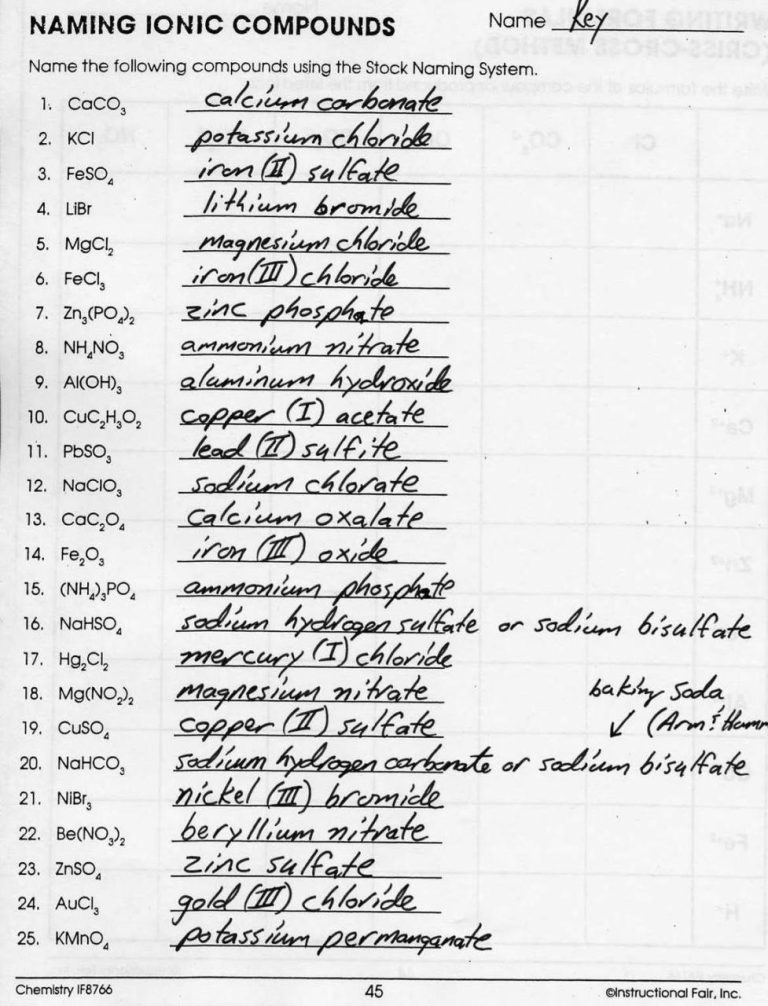 NAMING IONIC COMPOUNDS Name Key
Name the following compounds using the Stock Naming System.
1. CaCO₃ calcium carbonate
2. KCl potassium chloride
3. FeSO₄ iron (II) sulfate
4. LiBr lithium bromide
5. MgCl₂ magnesium chloride
6. FeCl₃ iron (III) chloride
7. Zn₃(PO₄)₂ zinc phosphate
8. NH₄NO₃ ammonium nitrate
9. Al(OH)₃ aluminum hydroxide
10. CuC₂H₃O₂ copper (I) acetate
11. PbSO₃ lead (II) sulfite
12. NaClO₃ sodium chlorate
13. CaC₂O₄ calcium oxalate
14. Fe₂O₃ iron (III) oxide
15. (NH₄)₃PO₄ ammonium phosphate
16. NaHSO₄ sodium hydrogen sulfate or sodium bisulfate
17. Hg₂Cl₂ mercury (I) chloride
18. Mg(NO₂)₂ magnesium nitrate baking soda
19. CuSO₄ copper (II) sulfate ↙ (Arm & Hamm
20. NaHCO₃ sodium hydrogen carbonate or sodium bisulfate
21. NiBr₃ nickel (III) bromide
22. Be(NO₃)₂ beryllium nitrate
23. ZnSO₄ zinc sulfate
24. AuCl₃ gold (III) chloride
25. KMnO₄ potassium permanganate
Chemistry IF8766 45 ©Instructional Fair, Inc.